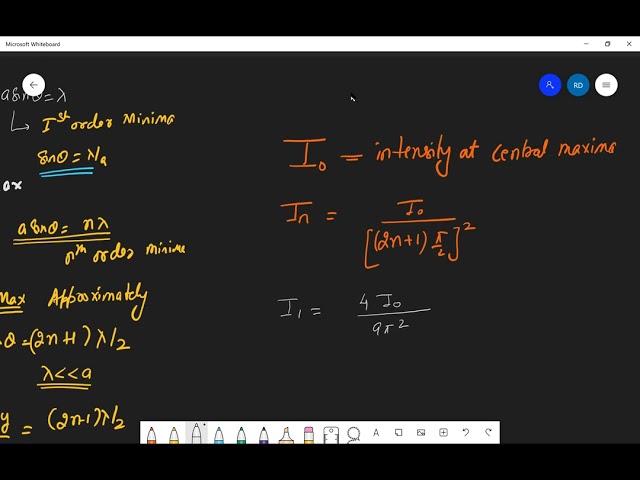 Microsoft Whiteboard
RD
a sinθ = λ
Ist order Minima
sinθ = λ/a
ax
a sinθ = nλ
nth order minima
Max Approximately
θ = (2n+1) λ/2
λ<<a
y = (2n-1) λ/2
I₀ = intensity at central maxima
Iₙ = I₀ / [(2n+1) π/2]²
I₁ = 4 I₀ / 9π²
A